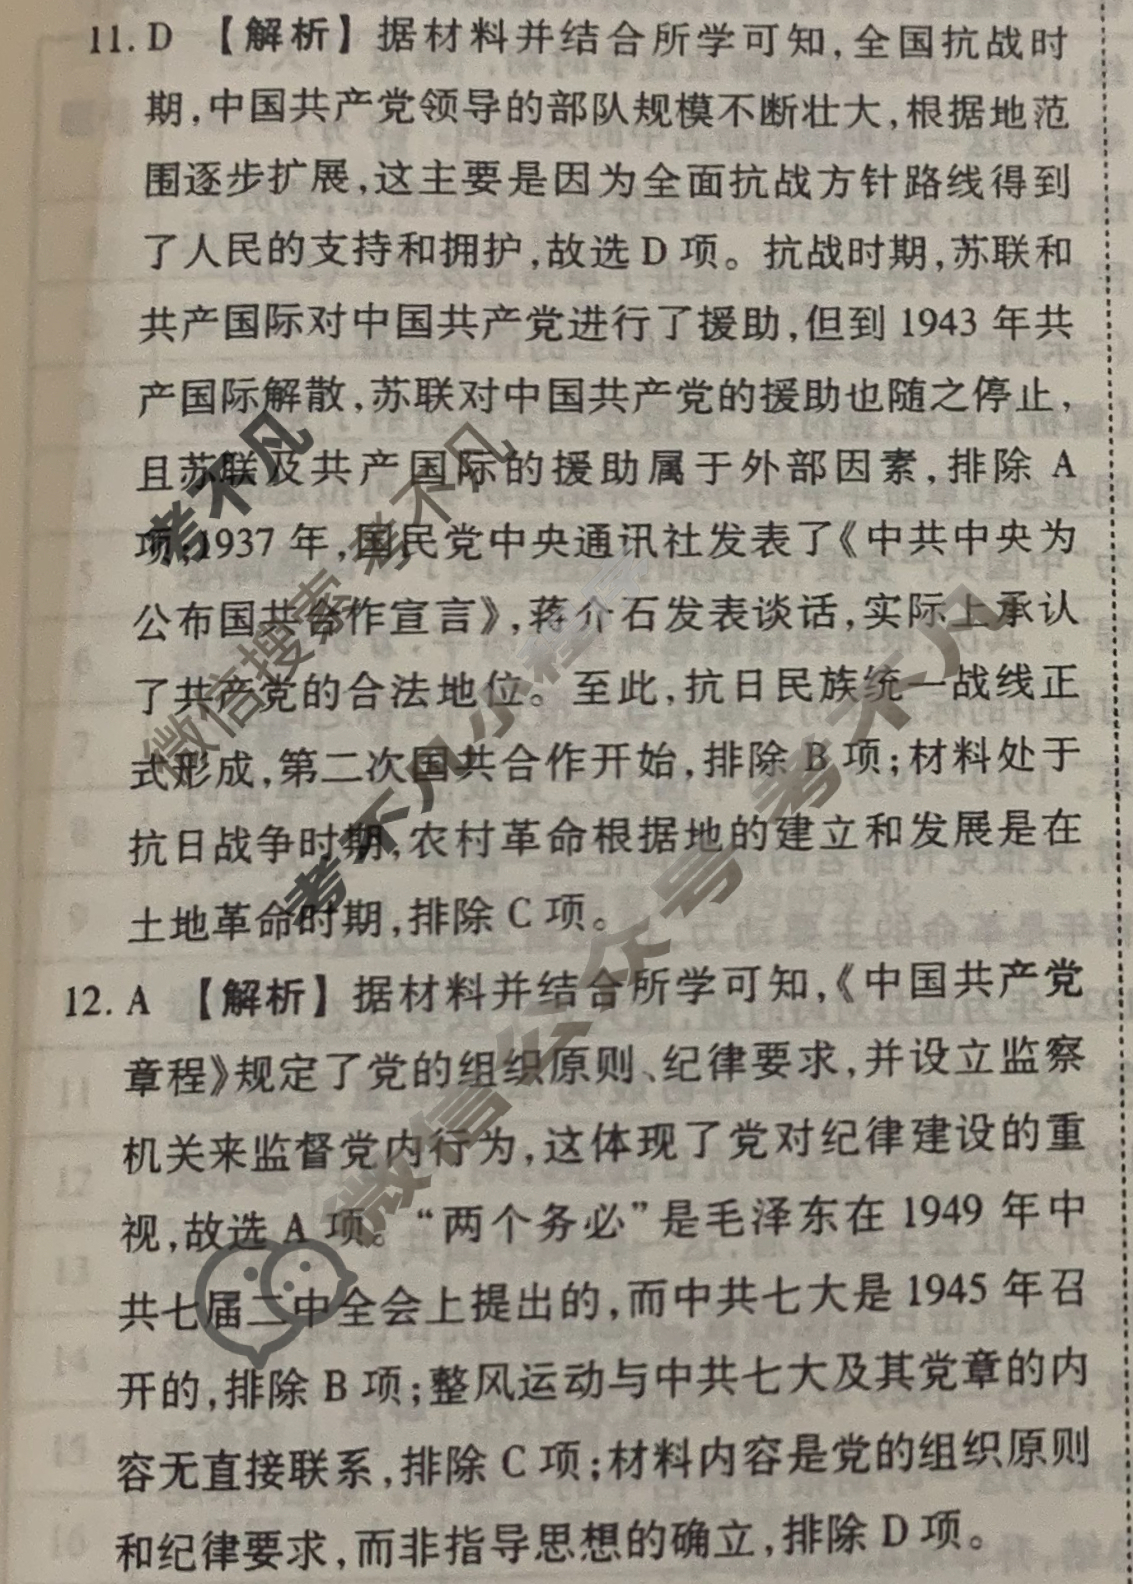 11. D 【解析】据材料并结合所学可知,全国抗战时
期,中国共产党领导的部队规模不断壮大,根据地范
围逐步扩展,这主要是因为全面抗战方针路线得到
了人民的支持和拥护,故选D项。抗战时期,苏联和
共产国际对中国共产党进行了援助,但到1943年共
产国际解散,苏联对中国共产党的援助也随之停止,
且苏联及共产国际的援助属于外部因素,排除A
项;1937年,国民党中央通讯社发表了《中共中央为
公布国共合作宣言》,蒋介石发表谈话,实际上承认
了共产党的合法地位。至此,抗日民族统一战线正
式形成,第二次国共合作开始,排除B项;材料处于
抗日战争时期,农村革命根据地的建立和发展是在
土地革命时期,排除C项。
12. A 【解析】据材料并结合所学可知,《中国共产党
章程》规定了党的组织原则、纪律要求,并设立监察
机关来监督党内行为,这体现了党对纪律建设的重
视,故选A项。“两个务必”是毛泽东在1949年中
共七届二中全会上提出的,而中共七大是1945年召
开的,排除B项;整风运动与中共七大及其党章的内
容无直接联系,排除C项;材料内容是党的组织原则
和纪律要求,而非指导思想的确立,排除D项。
考不凡
微信搜索 考不凡
考不凡小程序
微信公众号 考不凡